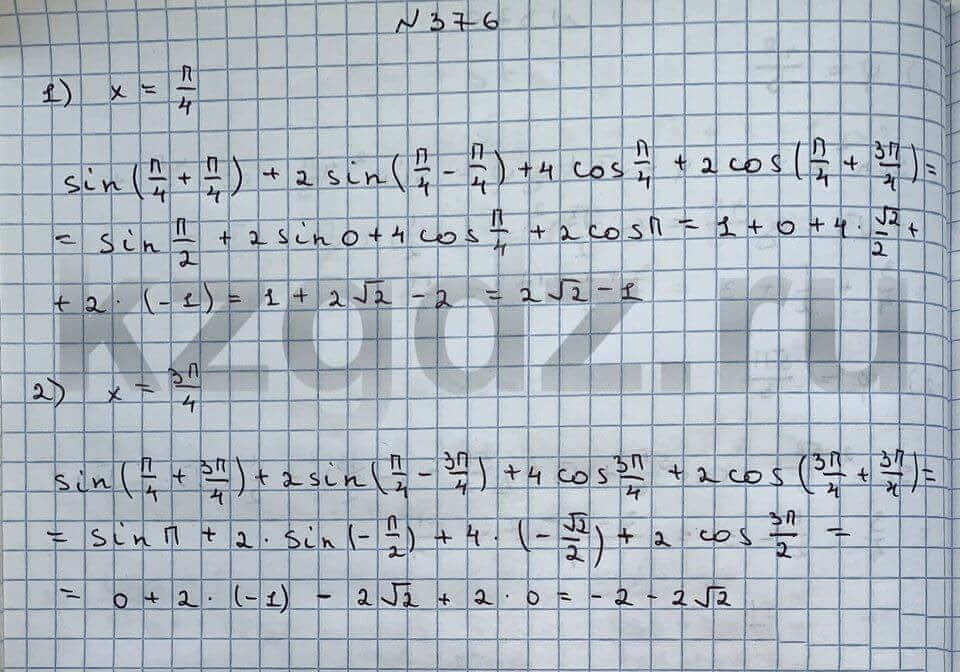 №376
1) x = π/4
sin(π/4 + π/4) + 2 sin(π/4 − π/4) + 4 cos π/4 + 2 cos(π/4 + 3π/4) =
= sin π/2 + 2 sin 0 + 4 cos π/4 + 2 cos π = 1 + 0 + 4 · √2/2 +
+ 2 · (−1) = 1 + 2√2 − 2 = 2√2 − 1
kzgdz.ru
2) x = 3π/4
sin(π/4 + 3π/4) + 2 sin(π/4 − 3π/4) + 4 cos 3π/4 + 2 cos(3π/4 + 3π/4) =
= sin π + 2 · sin(−π/2) + 4 · (−√2/2) + 2 cos 3π/2 =
= 0 + 2 · (−1) − 2√2 + 2 · 0 = −2 − 2√2